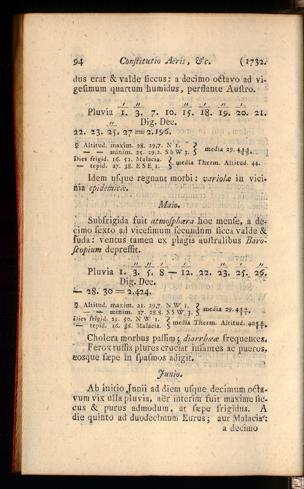 94 Constitutio Aëris, &c. (1732.
dus erat & valde siccus: a decimo octavo ad vi-
gesimum quartum humidus, perstante Austro.
Pluvia 1. 3. 7. 10. 15. 18. 19. 20. 21.
Dig. Dec.
22. 23. 25. 27 = 2.196.
☿ Altitud. maxim. 28. 29.7. N 1.
— — minim. 25. 29.1. S b W 3. } media 29.
Dies frigid. 16. 52. Malacia.
— tepid. 27. 38. E S E 1. } media Therm. Altitud. 44.
Idem usque regnant morbi: variolæ in vici-
nia epidemicæ.
Maio.
Subfrigida fuit atmosphæra hoc mense, a de-
cimo sexto ad vicesimum secundum sicca valde &
suda: ventus tamen ex plagis australibus Baro-
scopium depressit.
Pluvia 1. 3. 5. 8 — 12. 22. 23. 25. 26.
Dig. Dec.
— 28. 30 = 2.424.
☿ Altitud. maxim. 21. 29.7. N W 1.
— — minim. 27. 28.8. S W 3. } media 29.
Dies frigid. 21. 50. N W 1.
— tepid. 16. 36. Malacia. } media Therm. Altitud.
Cholera morbus passim; diarrhoeæ frequentes.
Ferox tussis plures cruciat infantes ac pueros,
eosque sæpe in spasmos adigit.
Junio.
Ab initio Junii ad diem usque decimum octa-
vum vix ulla pluvia, aër interim fuit maxime sic-
cus & purus admodum, at sæpe frigidus. A
die quinto ad duodecimum Eurus; aut Malacia:
a decimo